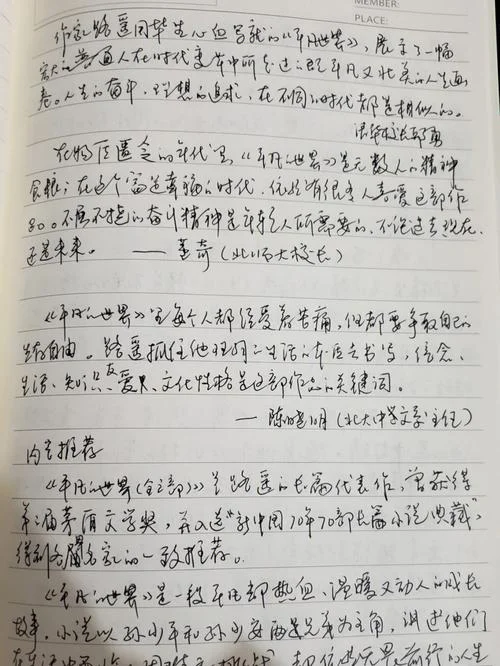 MEMBER:
PLACE:
作家路遥用毕生心血写就的《平凡世界》，展示了一幅
宏大的普通人在时代变革中所走过的既平凡又壮美的人生画
卷。人生的奋斗，理想的追求，在不同的时代都是相似的。
清华校长邱勇
在物质匮乏的年代里《平凡的世界》是无数人的精神
食粮；在这个富足幸福的时代，依然有很多人喜爱这部作
品。不屈不挠的奋斗精神是年轻人所需要的，不论过去现在，
还是未来。——董奇（北师大校长）
《平凡的世界》里每个人都经受着苦痛，但都要争取自己的
生存自由。路遥抓住他理解的生活的本质去书写，信念、
生活、知识、友爱、文化性格是这部作品的关键词。
—陈晓明（北大中文系主任）
内容推荐
《平凡的世界（全三部）》是路遥的长篇代表作，曾获得
第三届茅盾文学奖，并入选"新中国70年70部长篇小说典藏"，
得到各阅名家的一致推荐。
《平凡的世界》是一段平凡却热血、温暖又动人的成长
故事。小说以孙少平和孙少安两兄弟为主角，讲述他们